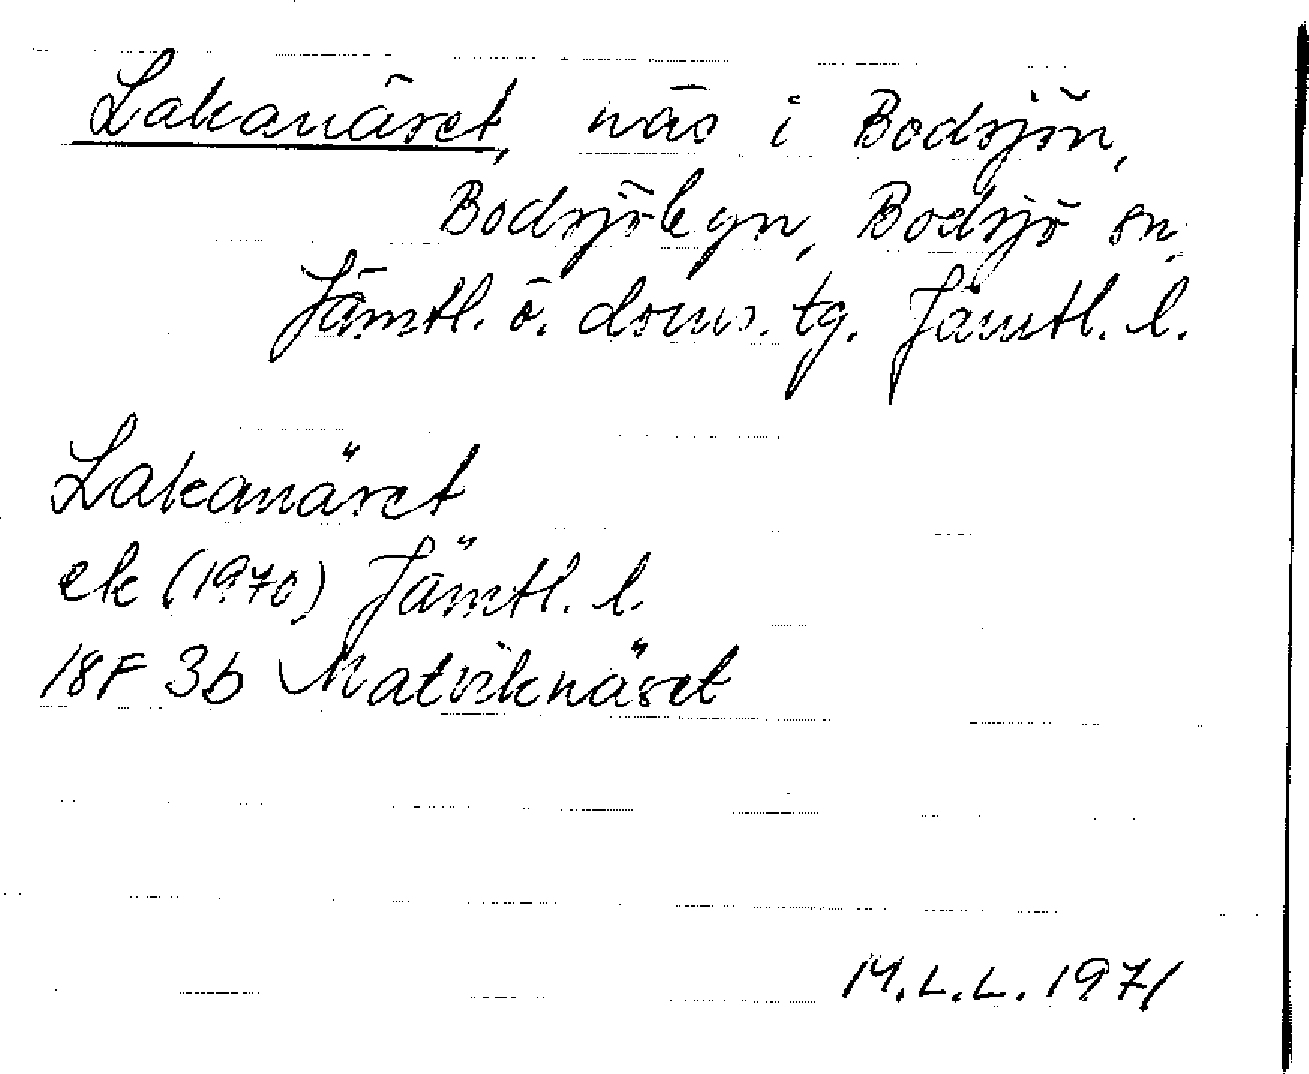 Lakanäset, näs i Bodsjön,
Bodsjöbyn, Bodsjö sn,
Jämtl. ö. doms. tg. Jämtl. l.
Lakanäset
ek (1970) Jämtl. l.
18F 3b Matviknäset
M.L.L. 1971